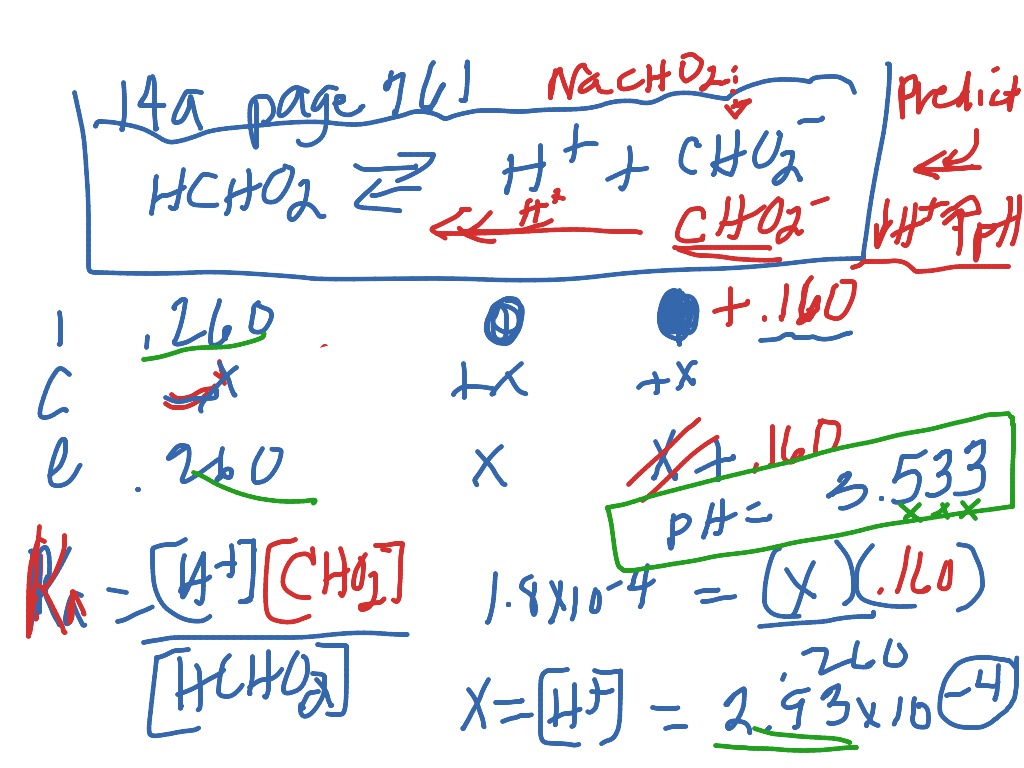 14a page 761 NaCHO2: Predict
HCHO2 ⇌ H+ + CHO2-
H+ CHO2- ↓H+ ↑pH
I .260 0 + .160
C - x +x +x
e .260 x x + .160
pH = 3.533
x x x
Ka = [H+][CHO2-] / [HCHO2]
1.8x10-4 = (x)(.160) / .260
x = [H+] = 2.93x10-4